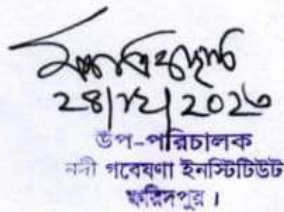 ২৪/১২/২০২৩
উপ-পরিচালক
নদী গবেষণা ইনস্টিটিউট
ফরিদপুর।